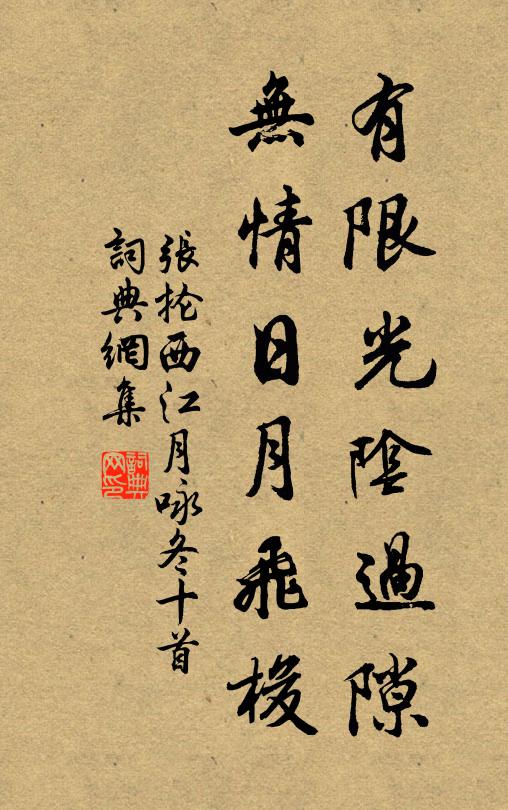 有限光陰過隙
無情日月飛梭
張抡西江月咏冬十首
詞典網集
詞典网印